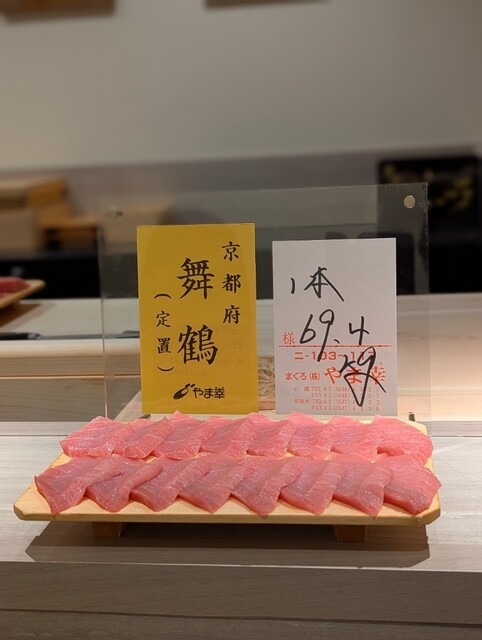 京都府
舞鶴
（定置）
やま幸
1本
69.4
様
ニ-103-
まぐろ(株)やま幸